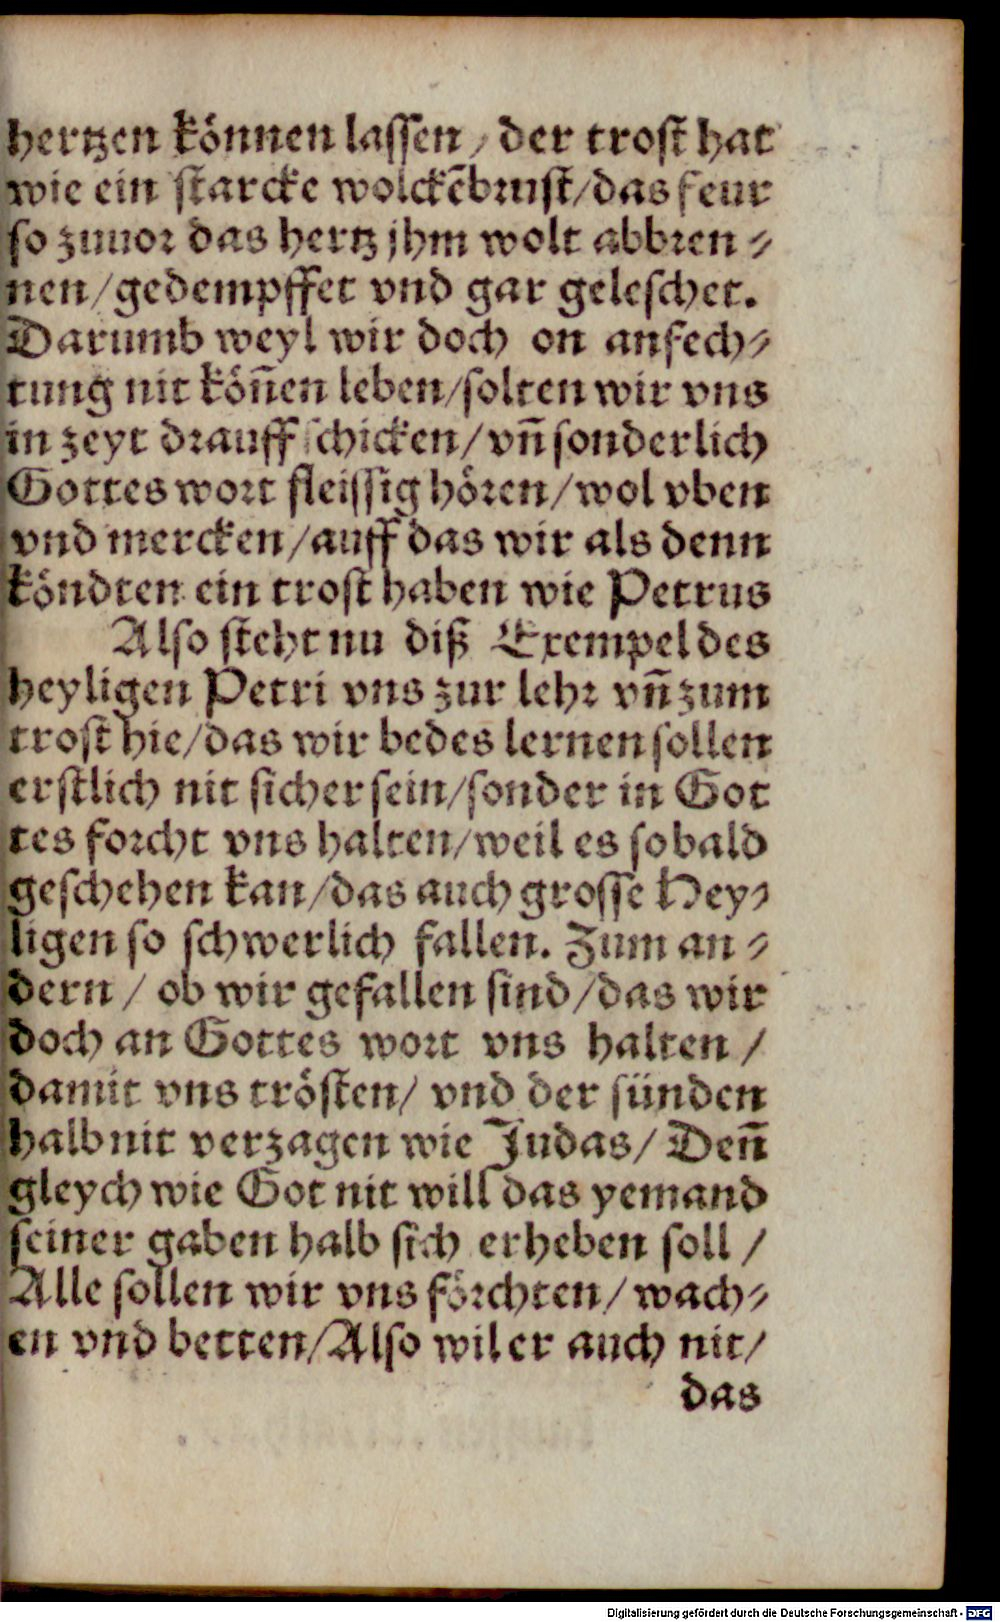 hertzen können lassen / der trost hat
wie ein starcke wolckēbrust/das feur
so zuuor das hertz jhm wolt abbren⸗
nen/gedempffet vnd gar geleschet.
Darumb weyl wir doch on anfech⸗
tung nit köñen leben/solten wir vns
in zeyt drauff schicken/vñ sonderlich
Gottes wort fleissig hören/wol vben
vnd mercken/auff das wir als denn
köndten ein trost haben wie Petrus
Also steht nu diß Exempel des
heyligen Petri vns zur lehr vñ zum
trost hie/das wir bedes lernen sollen
erstlich nit sicher sein/sonder in Got
tes forcht vns halten/weil es so bald
geschehen kan/das auch grosse Hey⸗
ligen so schwerlich fallen. Zum an⸗
dern / ob wir gefallen sind/das wir
doch an Gottes wort vns halten /
damit vns trösten/ vnd der sünden
halb nit verzagen wie Judas/ Deñ
gleych wie Got nit will das yemand
seiner gaben halb sich erheben soll /
Alle sollen wir vns förchten/ wach⸗
en vnd betten/Also wil er auch nit/
das
Digitalisierung gefördert durch die Deutsche Forschungsgemeinschaft - DFG